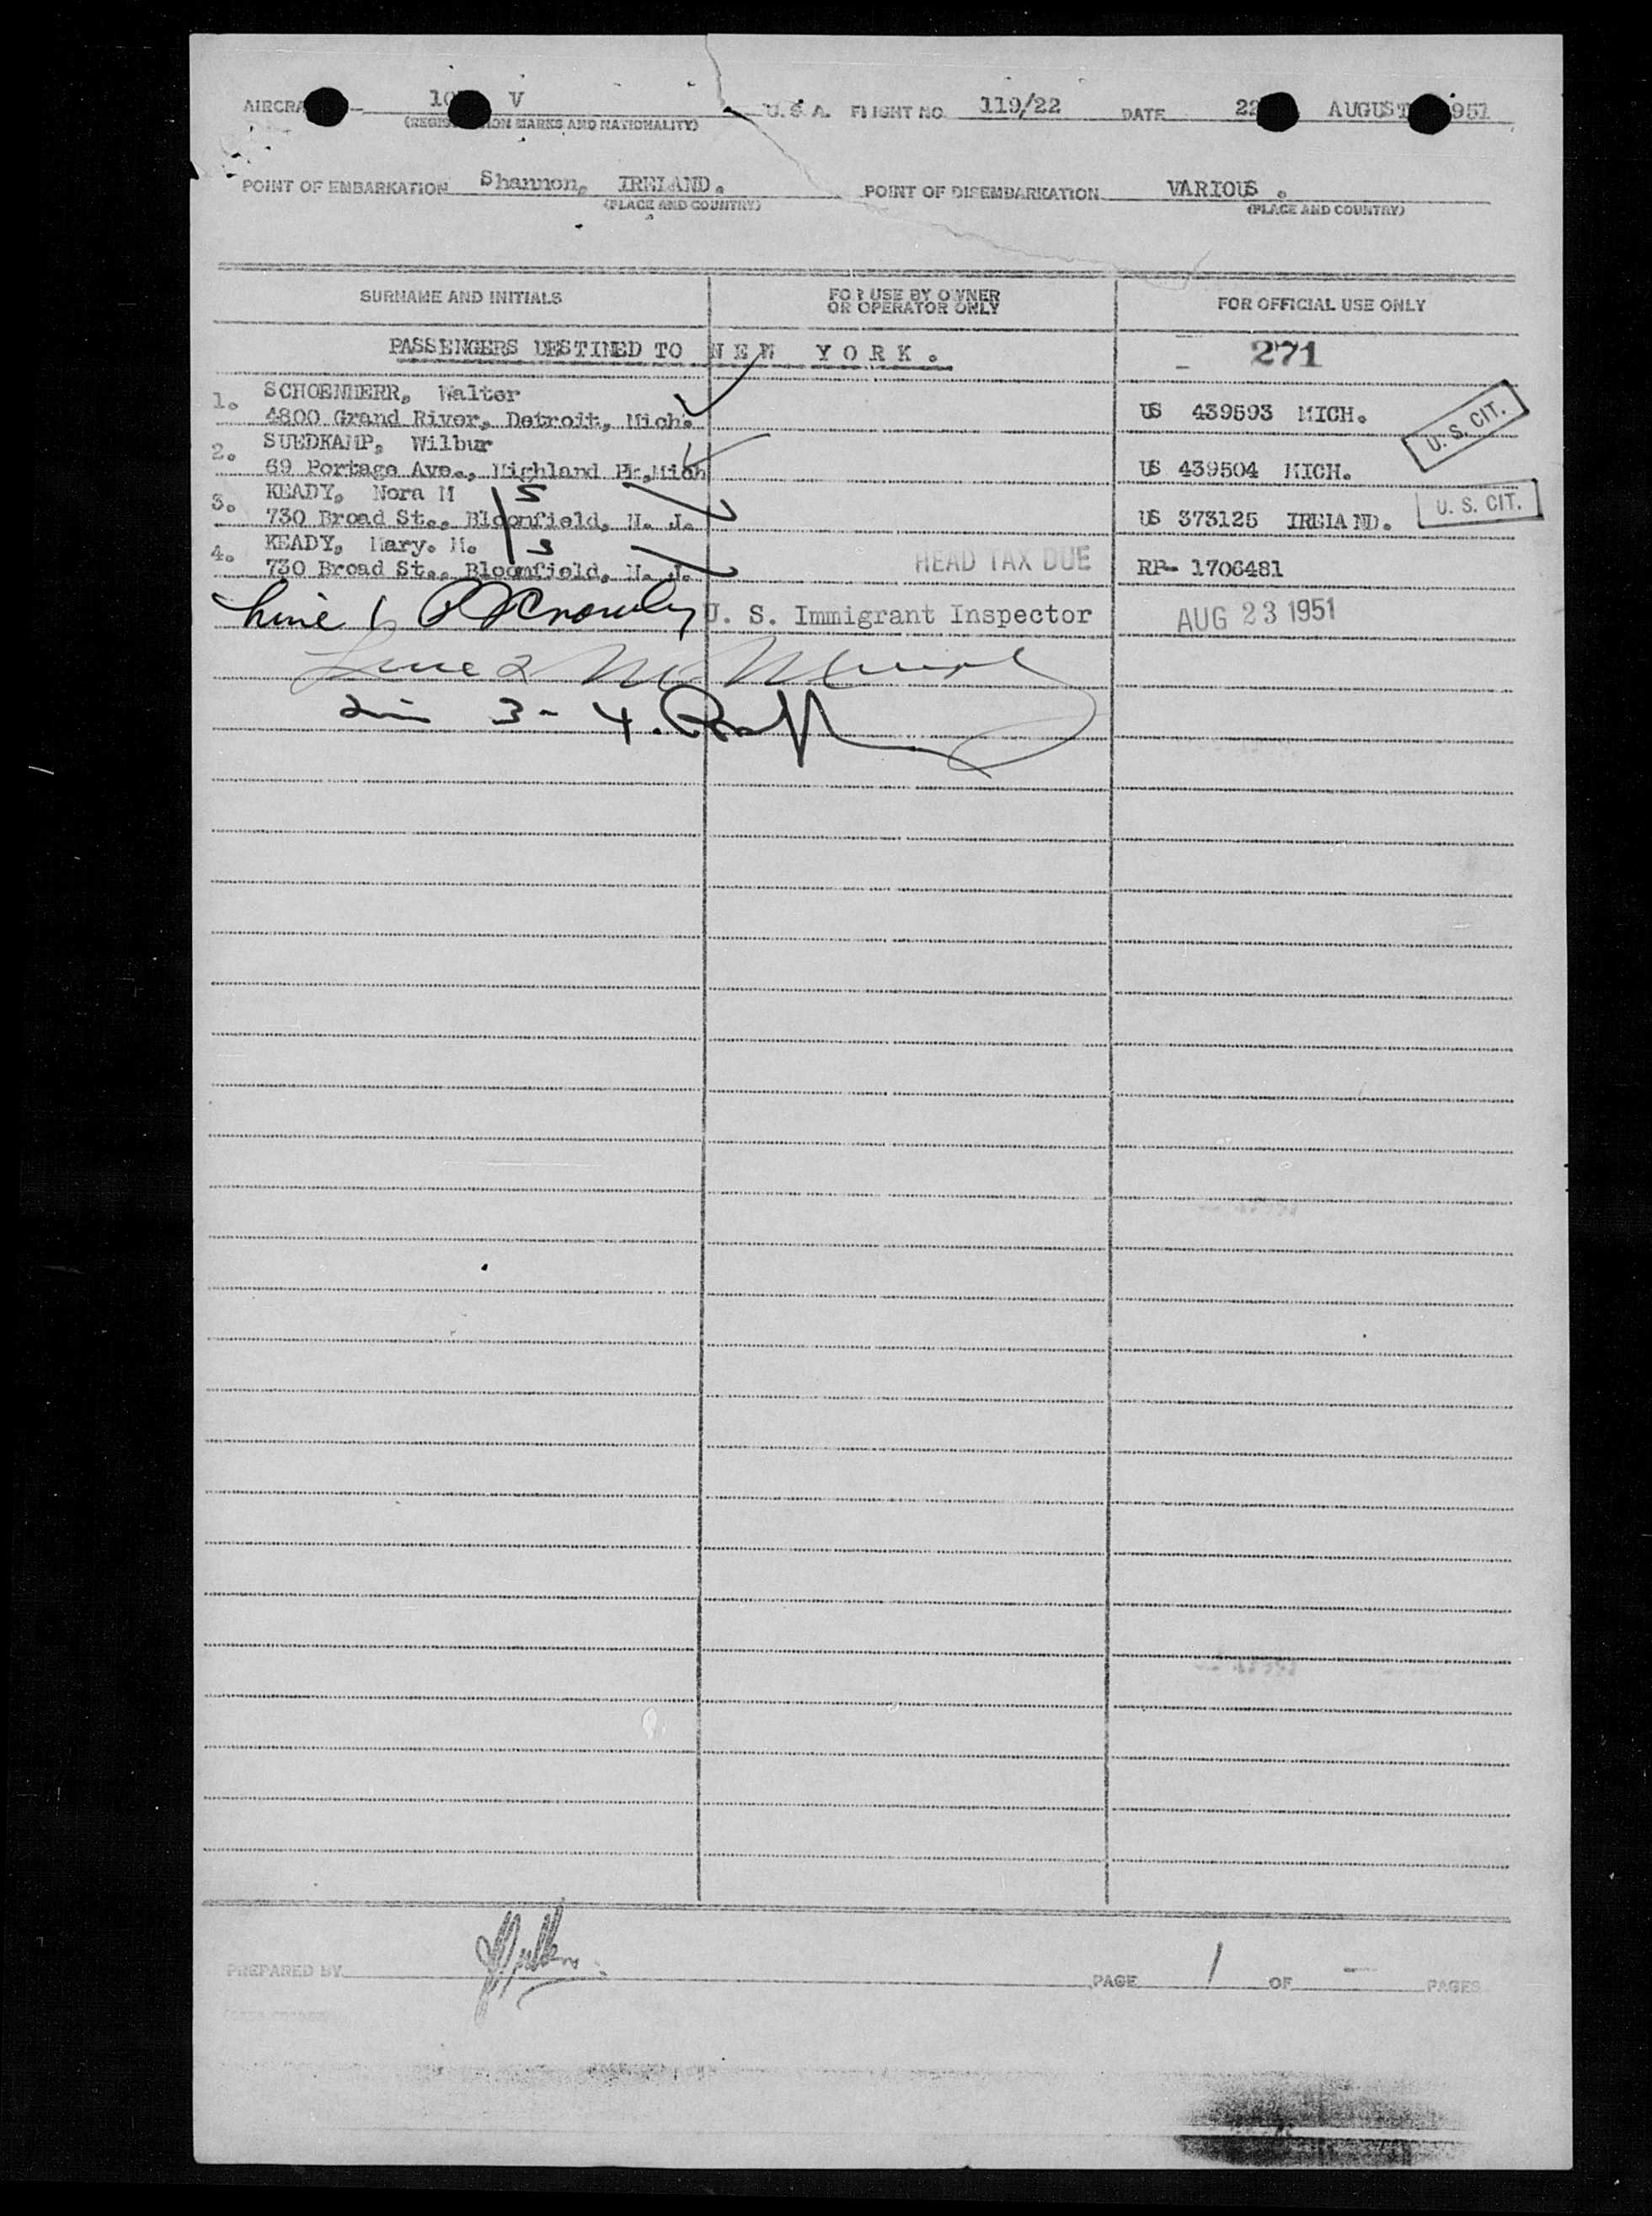 AIRCRA 10 V U.S.A. FLIGHT NO 119/22 DATE 22 AUGUST 951
(REGIS ION MARKS AND NATIONALITY)
POINT OF EMBARKATION Shannon, IRELAND. POINT OF DISEMBARKATION VARIOUS.
(PLACE AND COUNTRY) (PLACE AND COUNTRY)
SURNAME AND INITIALS FOR USE BY OWNER OR OPERATOR ONLY FOR OFFICIAL USE ONLY
PASSENGERS DESTINED TO NEW YORK. 271
1. SCHOENHERR, Walter
4800 Grand River, Detroit, Mich. US 439593 MICH. U. S. CIT.
2. SUEDKAMP, Wilbur
69 Portage Ave., Highland Pk, Mich US 439504 MICH.
3. KEADY, Nora M 5
730 Broad St., Bloomfield, N. J. US 373125 IRELAND. U. S. CIT.
4. KEADY, Mary. M. 3
730 Broad St., Bloomfield, N. J. HEAD TAX DUE RP- 1706481
Line 1 U. S. Immigrant Inspector AUG 23 1951
Line 2
Lin 3 - 4.
PREPARED BY PAGE 1 OF - PAGES